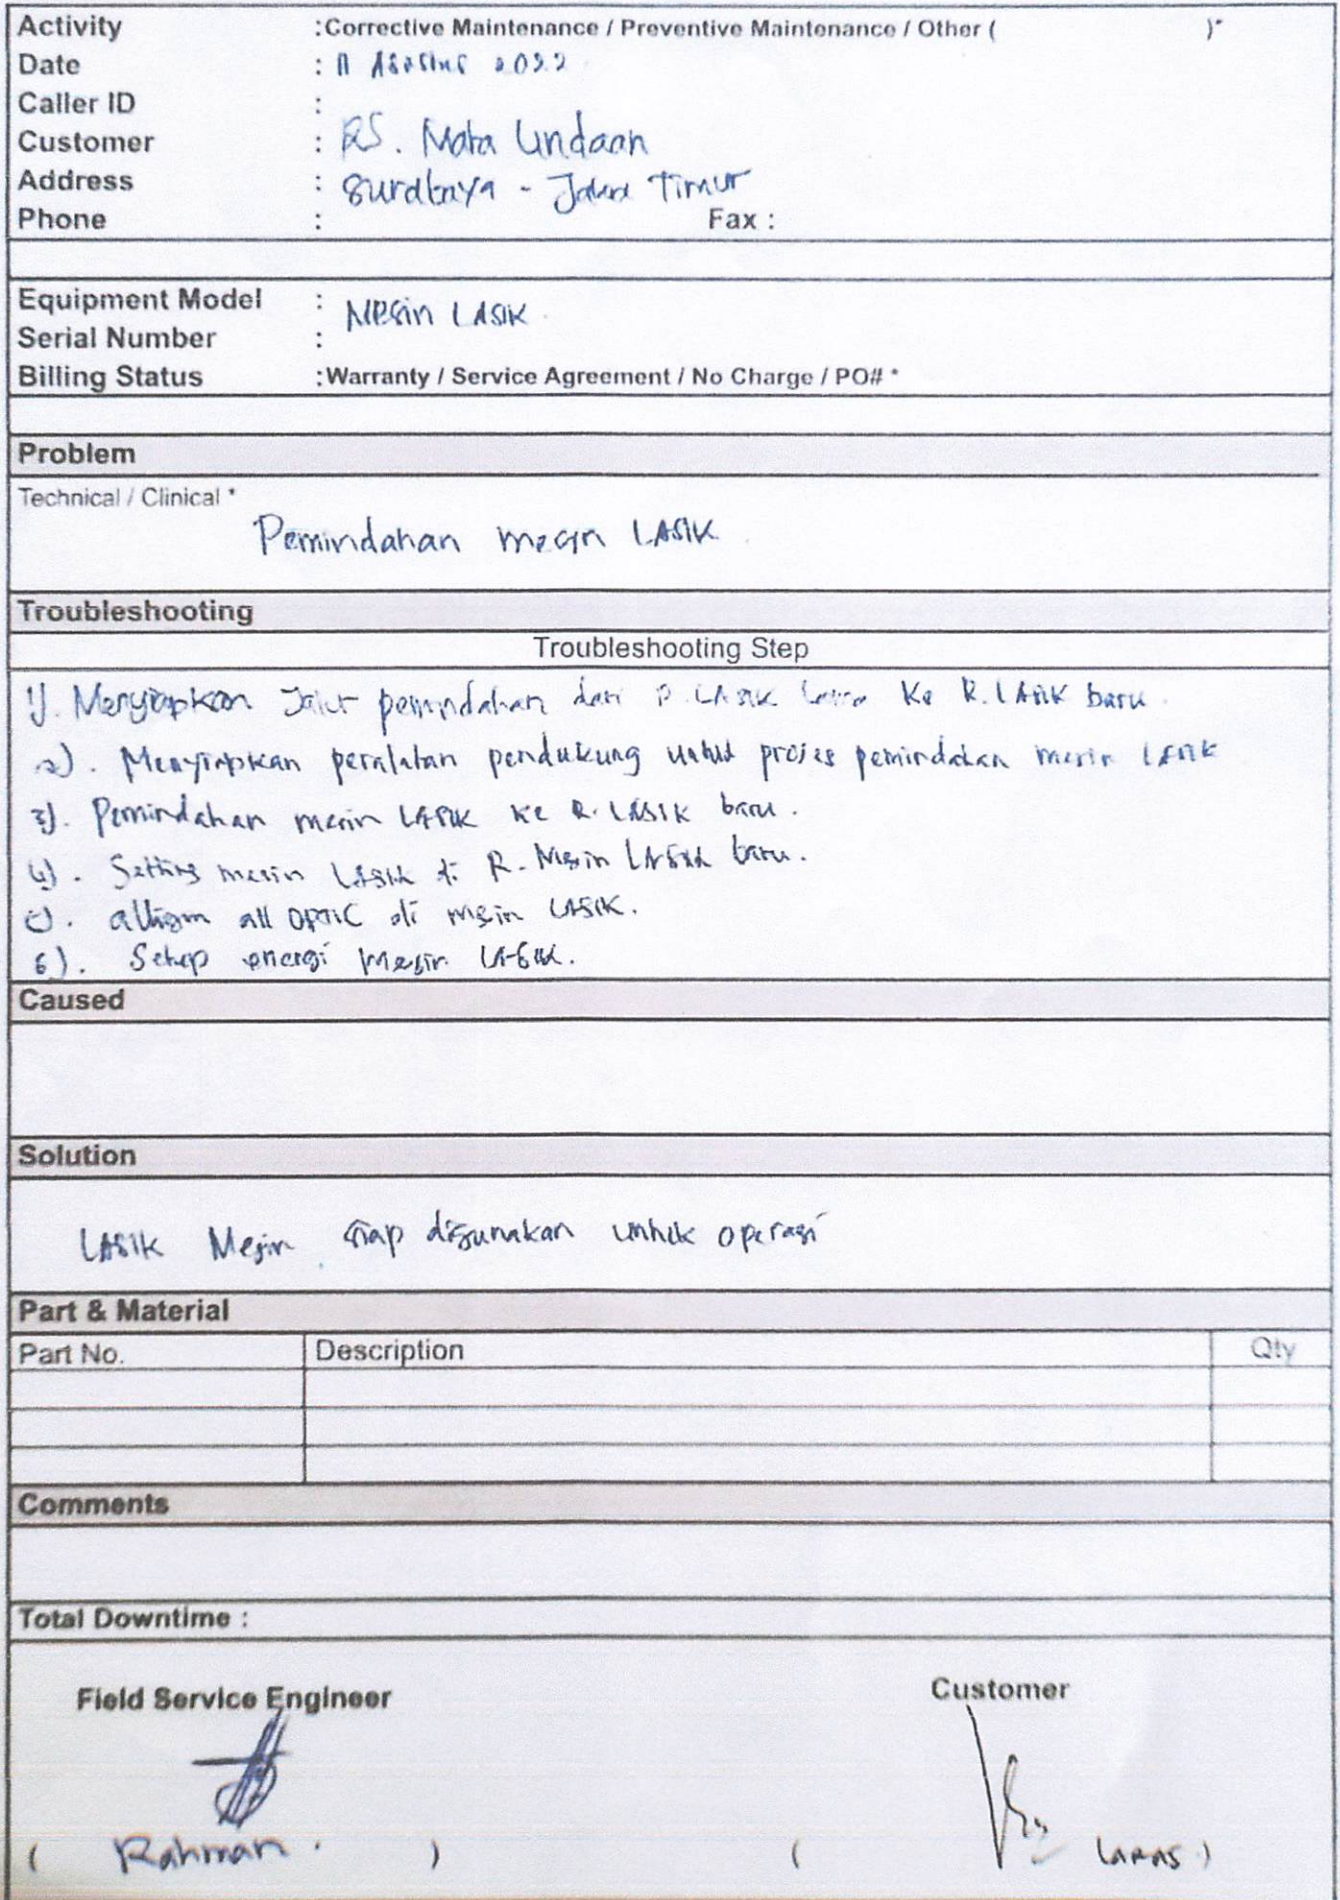 Activity : Corrective Maintenance / Preventive Maintenance / Other ( )*
Date : 11 Agustus 2022
Caller ID :
Customer : RS. Mata Undaan
Address : Surabaya - Jawa Timur
Phone : Fax :
Equipment Model : Mesin LASIK
Serial Number :
Billing Status : Warranty / Service Agreement / No Charge / PO# *
Problem
Technical / Clinical *
Pemindahan mesin LASIK
Troubleshooting
Troubleshooting Step
1). Menyiapkan Jalur pemindahan dari R. LASIK lama ke R. LASIK baru.
2). Menyiapkan peralatan pendukung untuk proses pemindahan mesin LASIK
3). Pemindahan mesin LASIK ke R. LASIK baru.
4). Setting mesin LASIK di R. Mesin LASIK baru.
5). all OPTIC di mesin LASIK.
6). Setup energi mesin LASIK.
Caused
Solution
LASIK Mesin siap digunakan untuk operasi
Part & Material
Part No. Description Qty
Comments
Total Downtime :
Field Service Engineer Customer
( Rahman. ) ( LARAS )